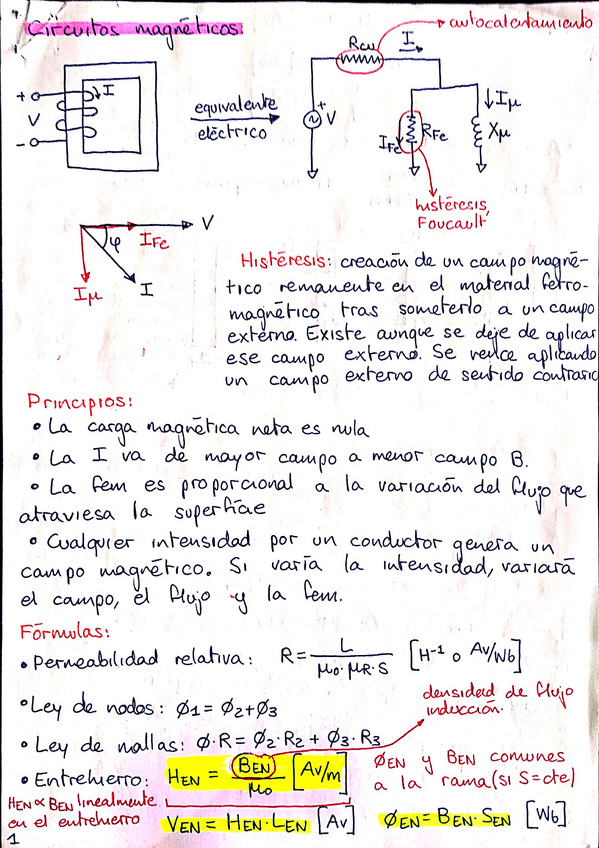 Circuitos magnéticos:
autocalentamiento
Rcu I
+ I
V
-
equivalente
eléctrico
+
V
IFe RFe
Iμ
Xμ
histéresis,
Foucault
V
φ IFe
Iμ I
Histéresis: creación de un campo magné-
tico remanente en el material ferro-
magnético tras someterlo a un campo
externo. Existe aunque se deje de aplicar
ese campo externo. Se vence aplicando
un campo externo de sentido contrario
Principios:
• La carga magnética neta es nula
• La I va de mayor campo a menor campo B.
• La fem es proporcional a la variación del flujo que
atraviesa la superficie
• Cualquier intensidad por un conductor genera un
campo magnético. Si varía la intensidad, variará
el campo, el flujo y la fem.
Fórmulas:
• Permeabilidad relativa: R = L / μ0·μR·S [H⁻¹ o Av/Wb]
densidad de flujo
inducción.
• Ley de nodos: Ø1 = Ø2 + Ø3
• Ley de mallas: Ø·R = Ø2·R2 + Ø3·R3
• Entrehierro: HEN = BEN / μ0 [Av/m]
ØEN y BEN comunes
a la rama (si S=cte)
HEN ∝ BEN linealmente
en el entrehierro
VEN = HEN·LEN [Av]
ØEN = BEN·SEN [Wb]
1